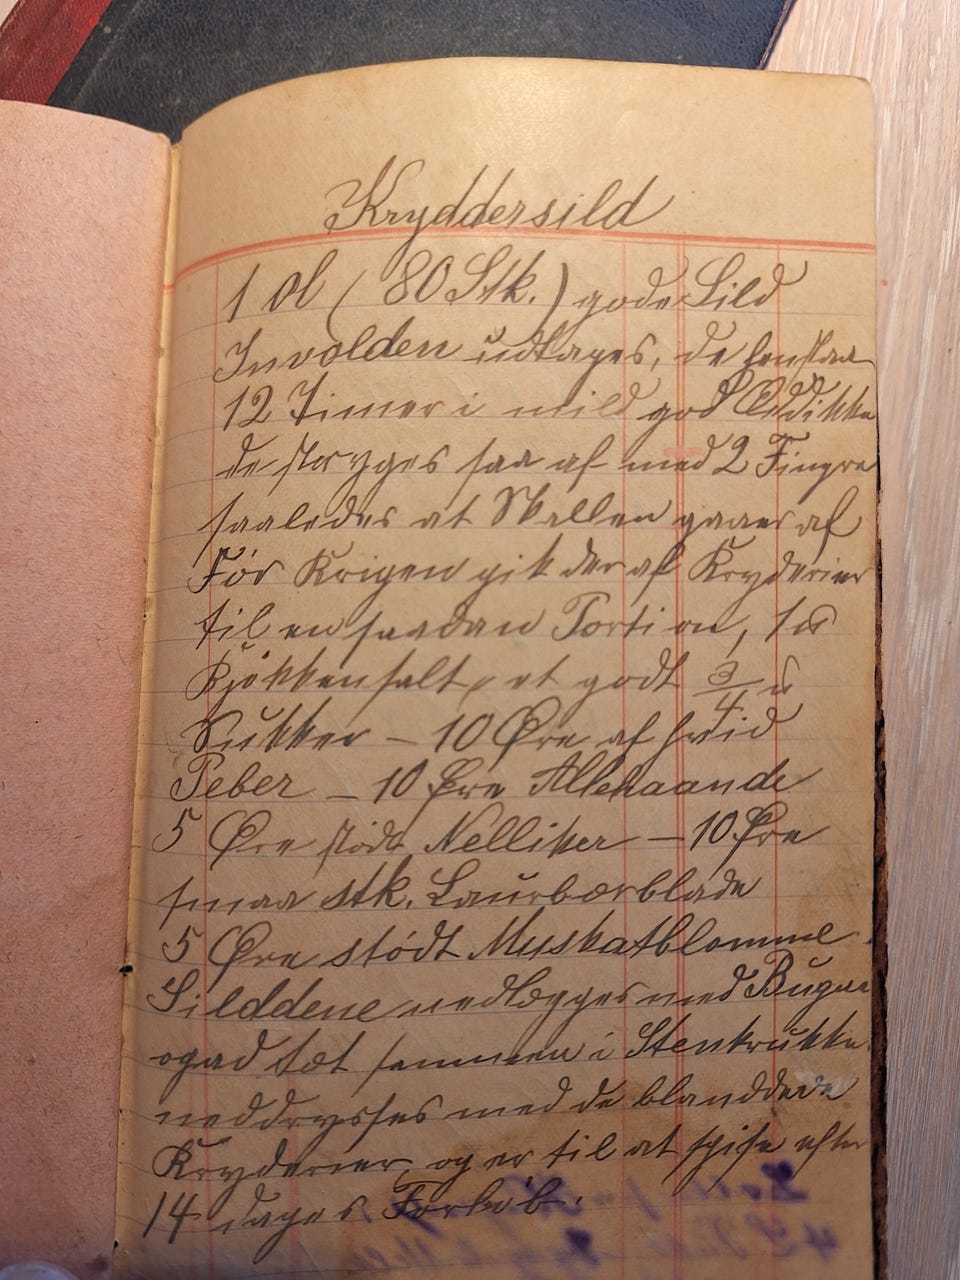 Kryddersild
1 Ol (80 Stk.) gode Sild
Involden udtages, de henstaa
12 Timer i mild god Eddikke
de stryges saa af med 2 Fingre
saaledes at Skallen gaaer af
Før Krigen gik der af Kryderier
til en saadan Portion, 1 u
Kjøkkensalt, et godt 3/4 u
Sukker – 10 Øre af hvid
Peber – 10 Øre Allehaande
5 Øre stødt Nelliker – 10 Øre
smaa stk. Laurbærblade
5 Øre stødt Muskatblomme.
Silddene nedlægges med Bugen
opad tæt sammen i Stenkrukke.
neddrysses med de blanddede
Kryderier, og er til at spise efter
14 dages Forløb.